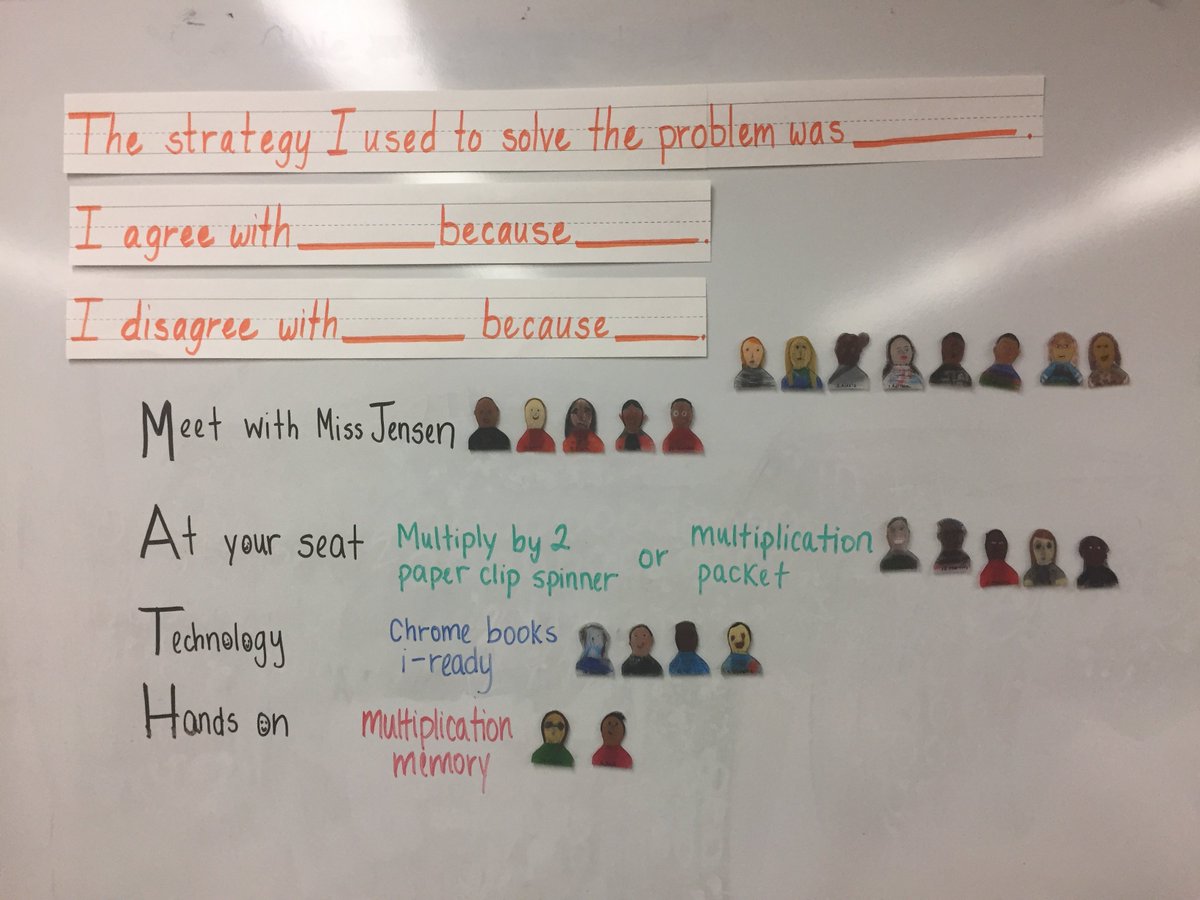 The strategy I used to solve the problem was ________.
I agree with ________ because ________.
I disagree with ________ because ________.
Meet with Miss Jensen
At your seat Multiply by 2 paper clip spinner or multiplication packet
Technology Chrome books i-ready
Hands on multiplication memory